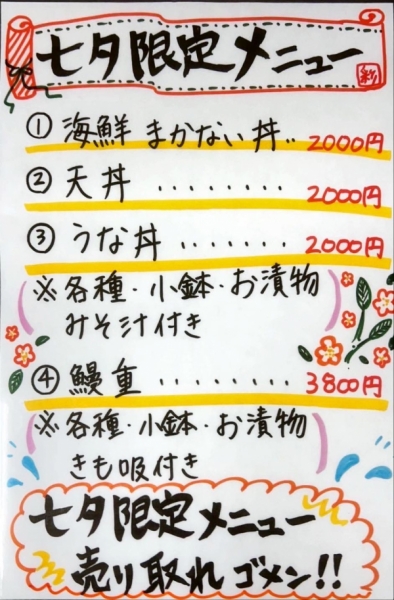 七夕限定メニュー
彩
① 海鮮まかない丼‥ 2000円
② 天丼 ‥‥‥‥ 2000円
③ うな丼 ‥‥‥‥ 2000円
※各種・小鉢・お漬物
みそ汁付き
④ 鰻重 ‥‥‥‥ 3800円
※各種・小鉢・お漬物
きも吸付き
七夕限定メニュー
売り取れゴメン!!